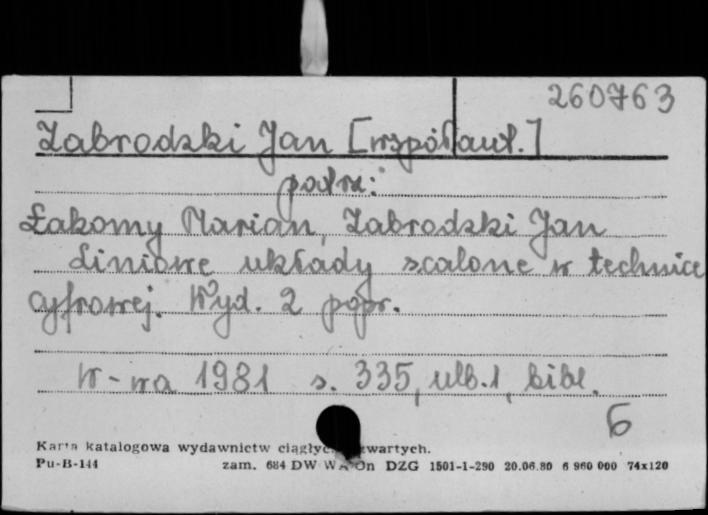 260763
Zabrodzki Jan [współaut.]
patrz:
Łakomy Marian, Zabrodzki Jan
Liniowe układy scalone w technice
cyfrowej. Wyd. 2 popr.
W-wa 1981 s. 335, nlb. 1, bibl.
6
Karta katalogowa wydawnictw ciągłyc twartych.
Pu-B-144 zam. 684 DW WA On DZG 1501-1-290 20.06.80 6 960 000 74x120